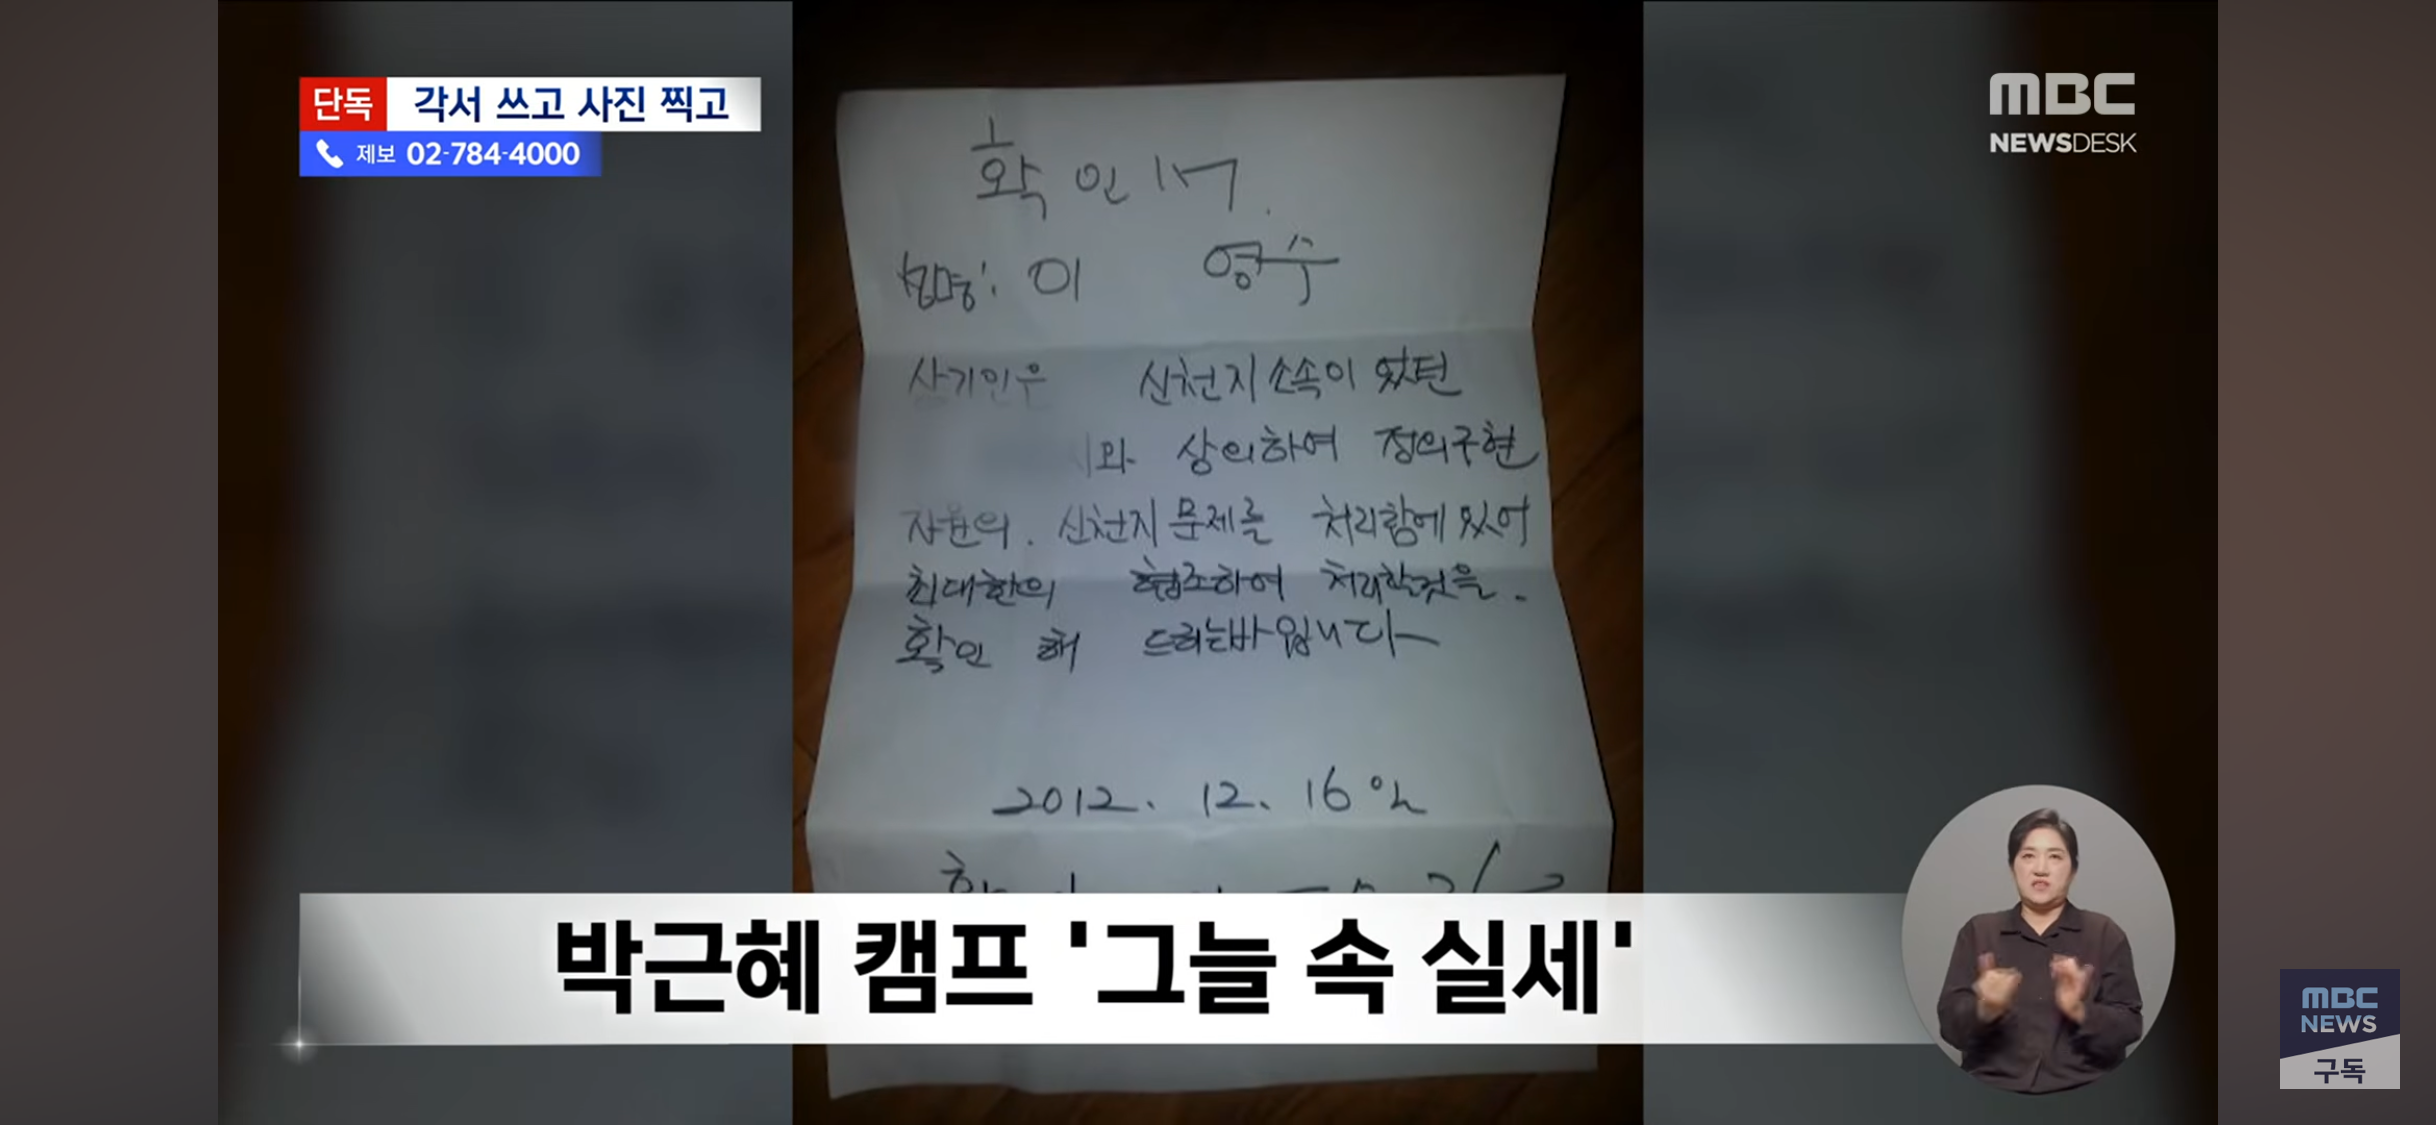 단독 각서 쓰고 사진 찍고
제보 02-784-4000
MBC
NEWSDESK
확인서.
성명: 이 영수
상기인은 신천지 소속이 었던
와 상의하여 정의구현
차원의. 신천지 문제를 처리함에 있어
최대한의 협조하여 처리할것을.
확인 해 드리는바입니다
2012. 12. 16일
박근혜 캠프 '그늘 속 실세'
MBC
NEWS
구독